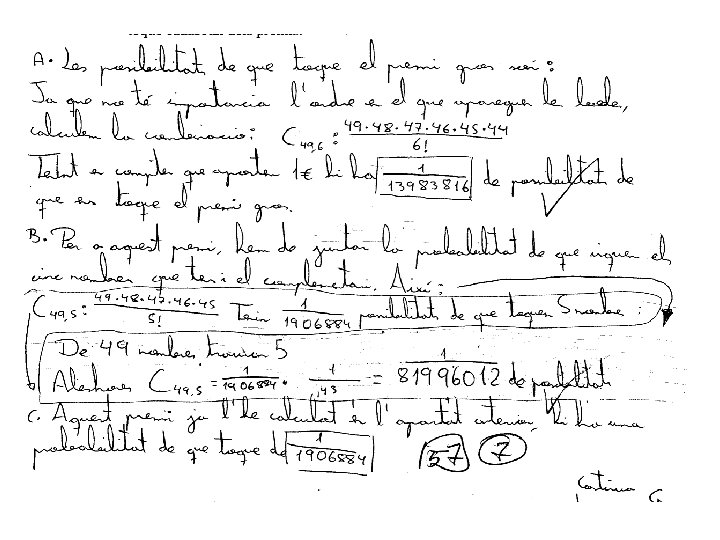 A. Les possibilitats de que toque el premi gros seri:
Ja que no té importancia l'ordre en el que apareguen les boles,
calculem la combinació: C49,6 : 49·48·47·46·45·44 / 6!
Tenint en compte que aposten 1€ hi ha 1/13983816 de possibilitats de
que ens toque el premi gros.
B. Per a aquest premi, hem de juntar la probabilitat de que isquen els
cinc nombres que tenim i el complementari. Així:
C49,5 : 49·48·47·46·45 / 5! Tenim 1/1906884 possibilitats de que toquen 5 nombres
De 49 nombres, trauran 5
Aleshores C49,5 = 1/1906884 · 1/43 = 1/81996012 de possibilitats
C. Aquest premi ja l'he calculat en l'apartat anterior, hi ha una
probabilitat de que toque de 1/1906884 57 7
Continua